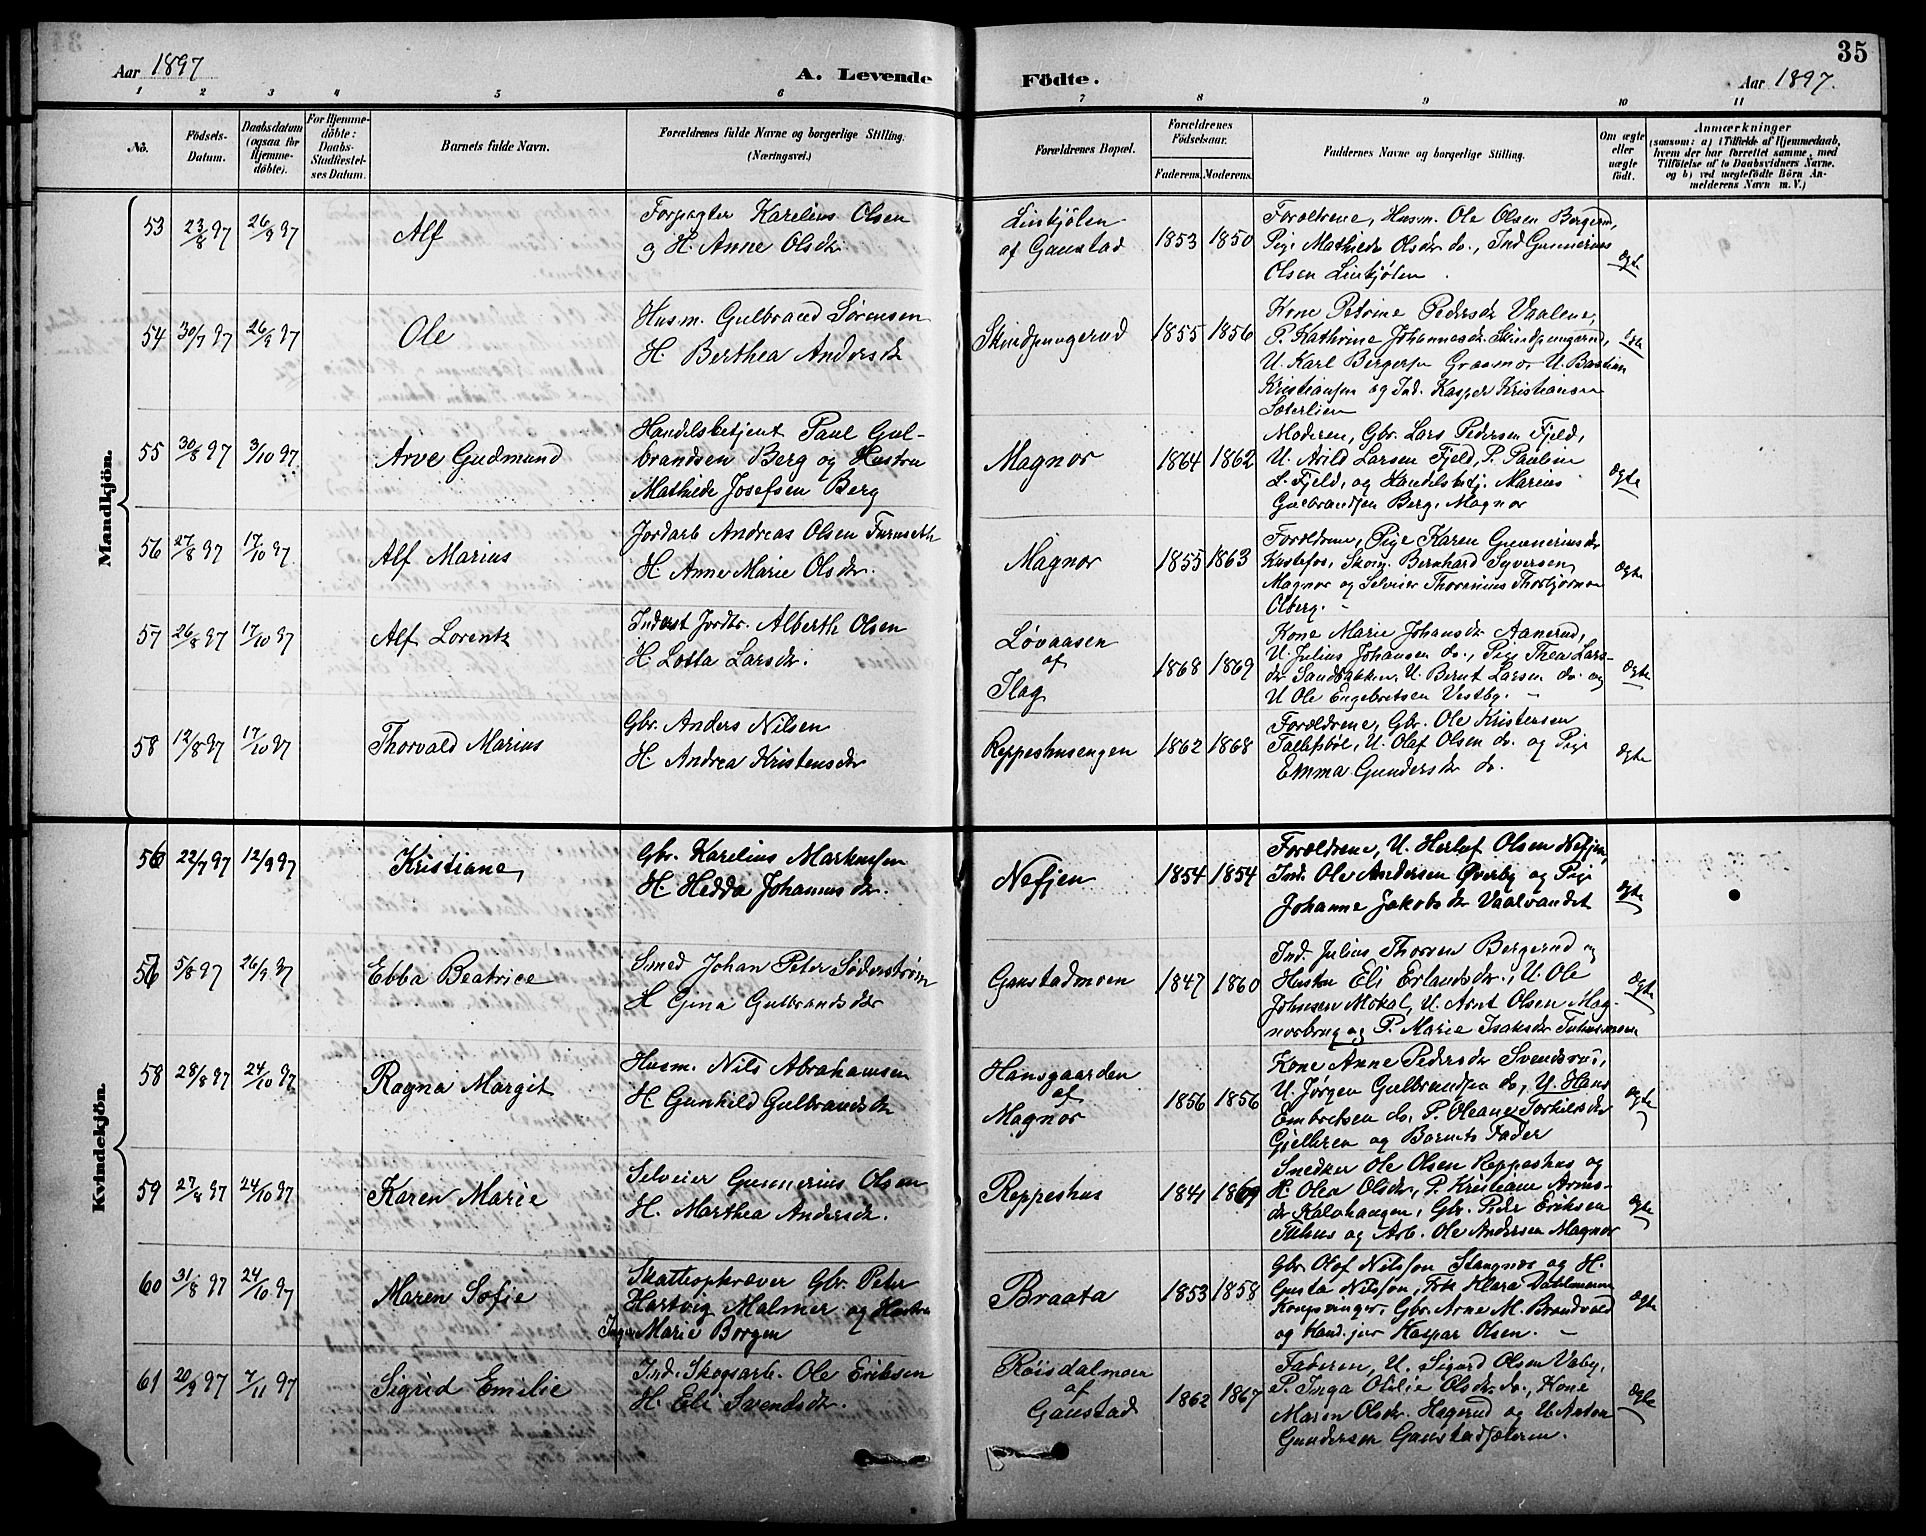 Aar 1897
A. Levende
Födte.
Aar 1897.
35
1 2 3 4 5 6 7 8 9 10 11
No.
Födsels-
Datum.
Daabsdatum
(ogsaa for
Hjemme-
döbte).
For Hjemme-
döbte:
Daabs-
Stadfæstel-
ses Datum.
Barnets fulde Navn.
Forældrenes fulde Navne og borgerlige Stilling.
(Næringsvei.)
Forældrenes Bopæl.
Forældrenes
Födselsaar.
Faderens. Moderens.
Faddernes Navne og borgerlige Stilling.
Om ægte
eller
uægte
födt.
Anmærkninger
(saasom: a) i Tilfælde af Hjemmedaab,
hvem der har forrettet samme, med
Tilföielse af to Daabsvidners Navne.
og b) ved uægtefödte Börn An-
melderens Navn m. V.)
Mandkjön.
53 23/8 97 26/9 97 Alf
Forpagter Karelius Olsen
og H. Anne Olsdr.
Linkjølen
af Gaustad
1853 1850
Forældrene, Husm. Ole Olsen Bergerud,
Pige Mathilde Olsdr do., Ind Gunnerius
Olsen Linkjølen
ægte
54 30/7 97 26/9 97 Ole
Husm. Gulbrand Sørensen
H. Berthea Andersdr
Skindpungerud
1855 1856
Kone Petrine Pedersdr Vaalene,
P. Kathrine Johannesdr. Skindpungerud,
U. Karl Bergersen Graamo, U. Bastian
Kristiansen og Ind. Kasper Kristiansen
Sæterlien
ægte
55 30/8 97 3/10 97 Arve Gudmund
Handelsbetjent Paul Gul-
brandsen Berg og Hustru
Mathilde Josefsen Berg
Magnor
1864 1862
Moderen, Gbr. Lars Pedersen Fjeld,
U. Arild Larsen Fjeld, P. Pauline
L. Fjeld, og Handelsbetj. Marius
Gulbrandsen Berg, Magnor
ægte
56 27/8 97 17/10 97 Alf Marius
Jordarb Andreas Olsen Furuseth
H. Anne Marie Olsdr.
Magnor
1855 1863
Forældrene, Pige Karen Gunneriusdr
Kustefos, Skom. Bernhard Syversen
Magnor og Selveier Thorenius Thorbjørnsen
Olberg.
ægte
57 26/8 97 17/10 97 Alf Lorentz
Inderst Jordbr. Alberth Olsen
H. Lotta Larsdr.
Løvaasen
af
Slag
1868 1869
Kone Marie Johansdr Aanerud,
U. Julius Johansen do., Pige Thea Lars-
dr Sandbakken, U. Bernt Larsen do. og
U Ole Engebretsen Vestby.
ægte
58 12/8 97 17/10 97 Thorvald Marius
Gbr. Anders Nilsen
H. Andrea Kristensdr
Reppeshusengen
1862 1868
Forældrene, Gbr. Ole Kristersen
Tallesbøl, U. Olaf Olsen do. og Pige
Emma Gundersdr do.
ægte
Kvindekjön.
56 22/7 97 12/9 97 Kristiane
Gbr. Karelius Markussen
H. Hedda Johannesdr.
Nefjen
1854 1854
Forældrene, U. Herlof Olsen Nefjen,
Ind. Ole Andersen Øverby og Pige
Johanne Jakobsdr Vaalvandet
ægte
57 5/8 97 26/9 97 Ebba Beatrice
Smed Johan Peter Söderström
H Gina Gulbrandsdr
Gaustadmoen
1847 1860
Ind. Julius Thorsen Bergerud og
Hustru Eli Erlandsdr., U. Ole
Johnsen Mokal, U. Arnt Olsen Mag-
norbrug og P. Marie Isaksdr Tuhusmoen
ægte
58 28/8 97 24/10 97 Ragna Margit
Husm. Nils Abrahamsen
H Gunhild Gulbrandsdr
Hansgaarden
af
Magnor
1856 1856
Kone Anne Pedersdr Svendsrud,
U. Jørgen Gulbrandsen do., U. Hans
Embretsen do, P. Oleane Torkilsdr
Gjelleren og Barnets Fader
ægte
59 27/8 97 24/10 97 Karen Marie
Selveier Gunnerius Olsen
H. Marthea Andersdr.
Reppeshus
1841 1869
Snedker Ole Olsen Reppeshus og
H. Olea Olsdr, P. Kristiane Arnes-
dr Kalvhaugen, Gbr. Peder Eriksen
Tuhus og Arb. Ole Andersen Magnor
ægte
60 31/8 97 24/10 97 Maren Sofie
Skatteopkræver Gbr. Peter
Hartvig Malmer og Hustru
Inga Marie Borgen
Braata
1853 1858
Gbr. Olof Nilsson Stangnes og H.
Gusta Nilsson, Frk Klara Dahlmann
Kongsvinger, Gbr. Arne M. Brandvold
og Kand. jur Kaspar Olsen.
ægte
61 20/9 97 7/11 97 Sigrid Emilie
Ind. Skogsarb. Ole Eriksen
H. Eli Svendsdr.
Roisdalmoen
af
Gaustad
1862 1867
Faderen, U. Sigurd Olsen Vaby,
P. Inga Otilie Olsdr do, Kone
Maren Olsdr. Hagerud og U. Anton
Gundersen Gaustadsæteren.
ægte